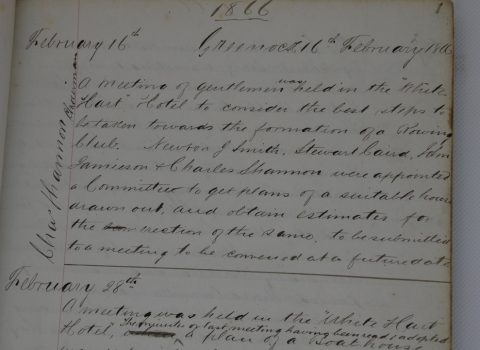 1866
1
February 16th Greenock 16th February 1866
A meeting of gentlemen was held in the "White
Hart" Hotel to consider the best steps to
be taken towards the formation of a Rowing
Club. Newton J Smith, Stewart Caird, John
Jamieson & Charles Shannon were appointed
a Committee to get plans of a suitable house
drawn out, and obtain estimates for
the erection of the same, to be submitted
to a meeting to be convened at a future date
Chas Shannon Chairman
February 28th
A meeting was held in the "White Hart
Hotel, The minutes of last meeting having been read & adopted
a plan of a Boat house